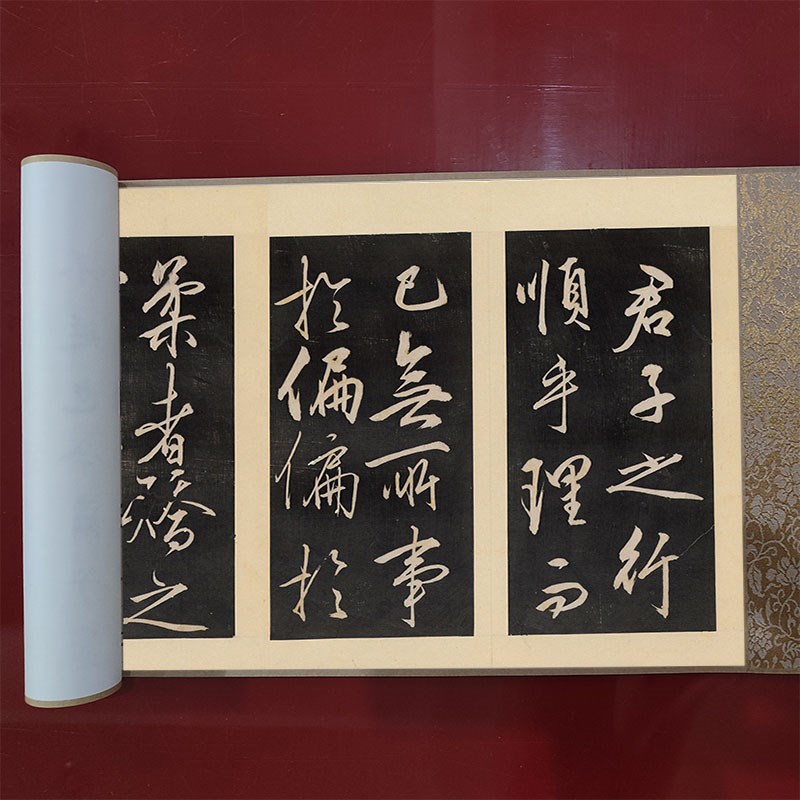 君子之行
順乎理而
已無所事
於偏偏於
柔者矯之